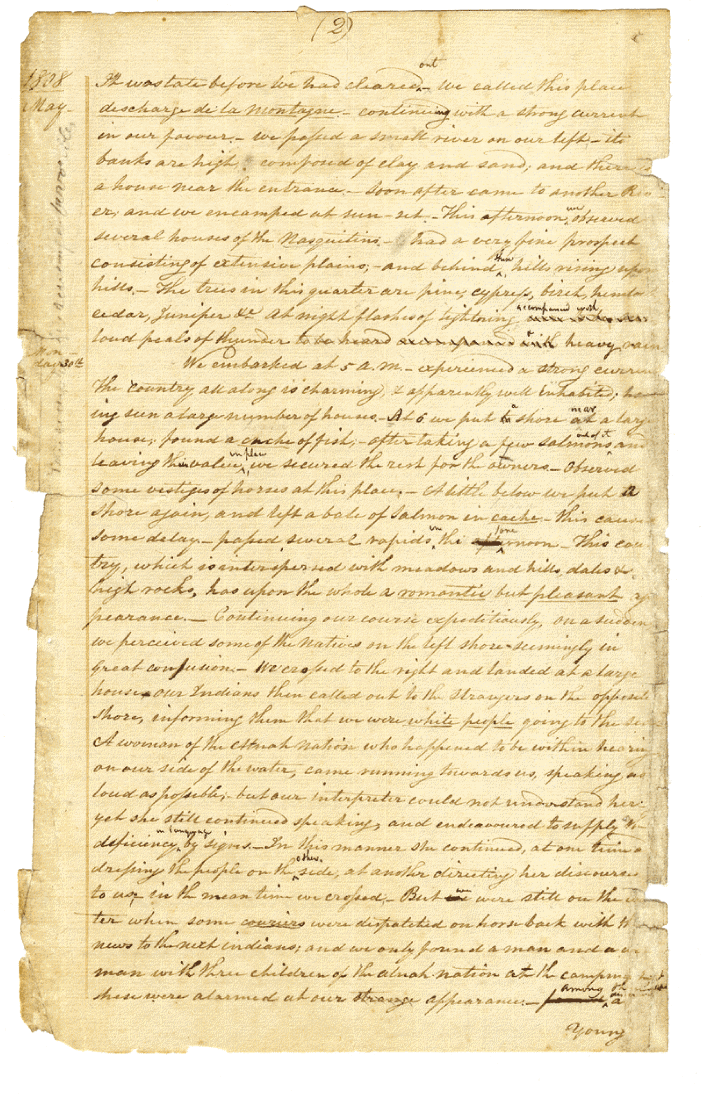 (2)
1808
May.
It was late before we had cleared out - We called this place
discharge de la Montagne - continuing with a strong current
in our favour. - we passed a small river on our left - its
banks are high composed of clay and sand; and there
a house near the entrance. - Soon after came to another Riv
er; and we encamped at sun-set. - This afternoon we observed
several houses of the Nasquitins. - had a very fine prospect
consisting of extensive plains, - and behind them hills rising upon
hills. - The trees in this quarter are pine, cypress, birch, hemloc
cedar, Juniper &c At night flashes of lightning accompanied with
loud peals of thunder to be heard with heavy rain
30th
We embarked at 5 a.m. - experienced a strong curren
The country all along is charming, & apparently well Enhabited; hav
ing seen a large number of houses. - At 6 we put to a shore near at a large
house; found a cache of fish; - after taking a few salmons out of it and
leaving the value in plac, we secured the rest for the owners. - Observed
some vestiges of horses at this place. - A little below we put a
shore again, and left a bale of Salmon in cache. This caused
some delay. - passed several rapids in the fore noon - This coun
try, which is interspersed with meadows and hills, dales &
high rocks, has upon the whole a romantic but pleasant ap
pearance. - Continuing our course expeditiously, on a sudden
we perceived some of the Natives on the left shore seemingly in
great confusion. - We crossed to the right and landed at a large
house, our Indians then called out to the strangers on the opposite
shore, informing them that we were white people going to the sea
A woman of the Atnah Nation who happened to be within hearing
on our side of the water, came running towards us, speaking as
loud as possible; - but our interpreter could not understand her
yet she still continued speaking, and endeavoured to supply the
deficiency in language by signs. - In this manner she continued, at one time ad
dressing the people on the other side, at another directing her discourse
to us, in the mean time we crossed; - But we were still on the wa
ter when some couriers were dispatched on horse back with the
news to the next indians; and we only found a man and a wo
man with three children of the atnah nation at the camping
these were alarmed at our strange appearance. - among a
Young